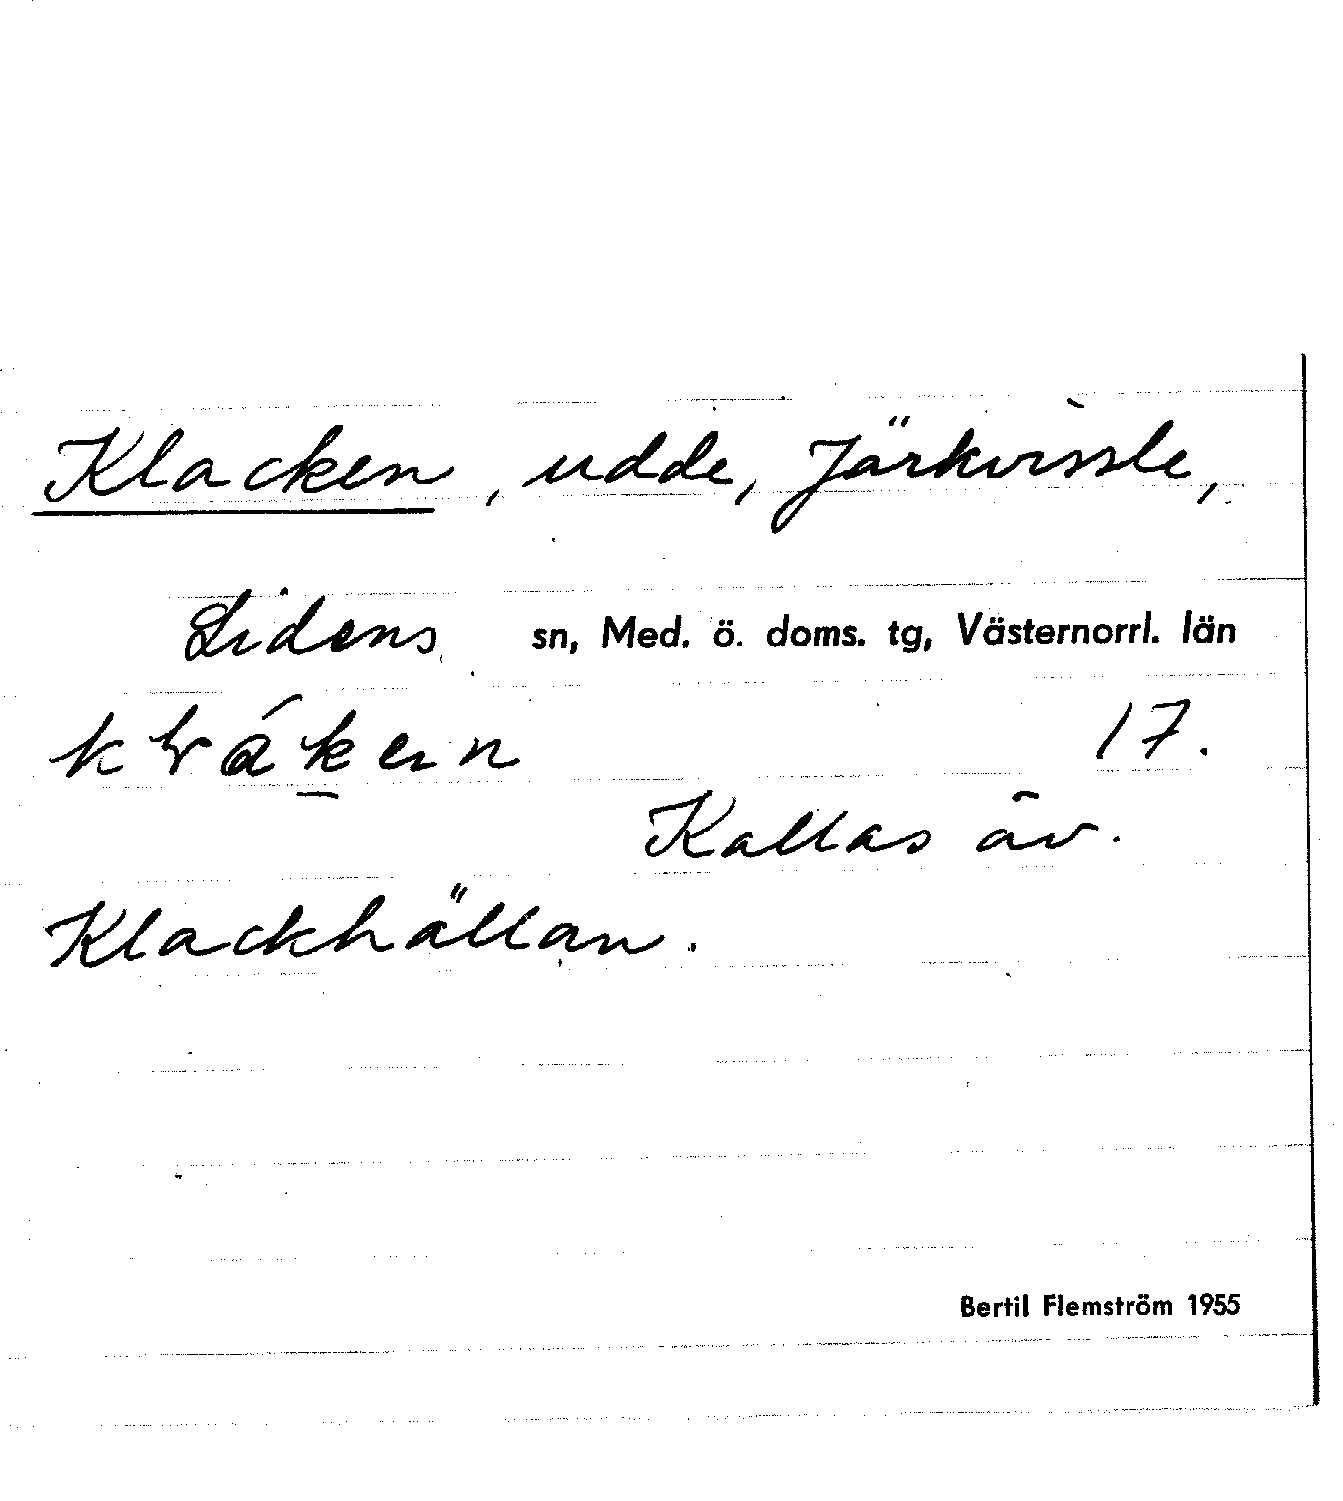 Klacken, udde, Järkvissle,
Lidens sn, Med. ö. doms. tg, Västernorrl. län
17.
Kallas äv.
Klackhällan.
Bertil Flemström 1955